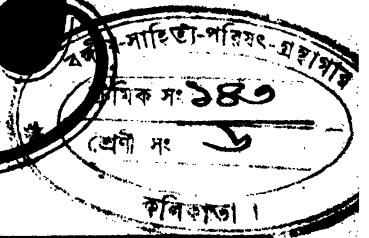 বঙ্গীয়-সাহিত্য-পরিষৎ-গ্রন্থাগার
মিক সং ১৪৩
শ্রেণী সং ৬
কলিকাতা ।